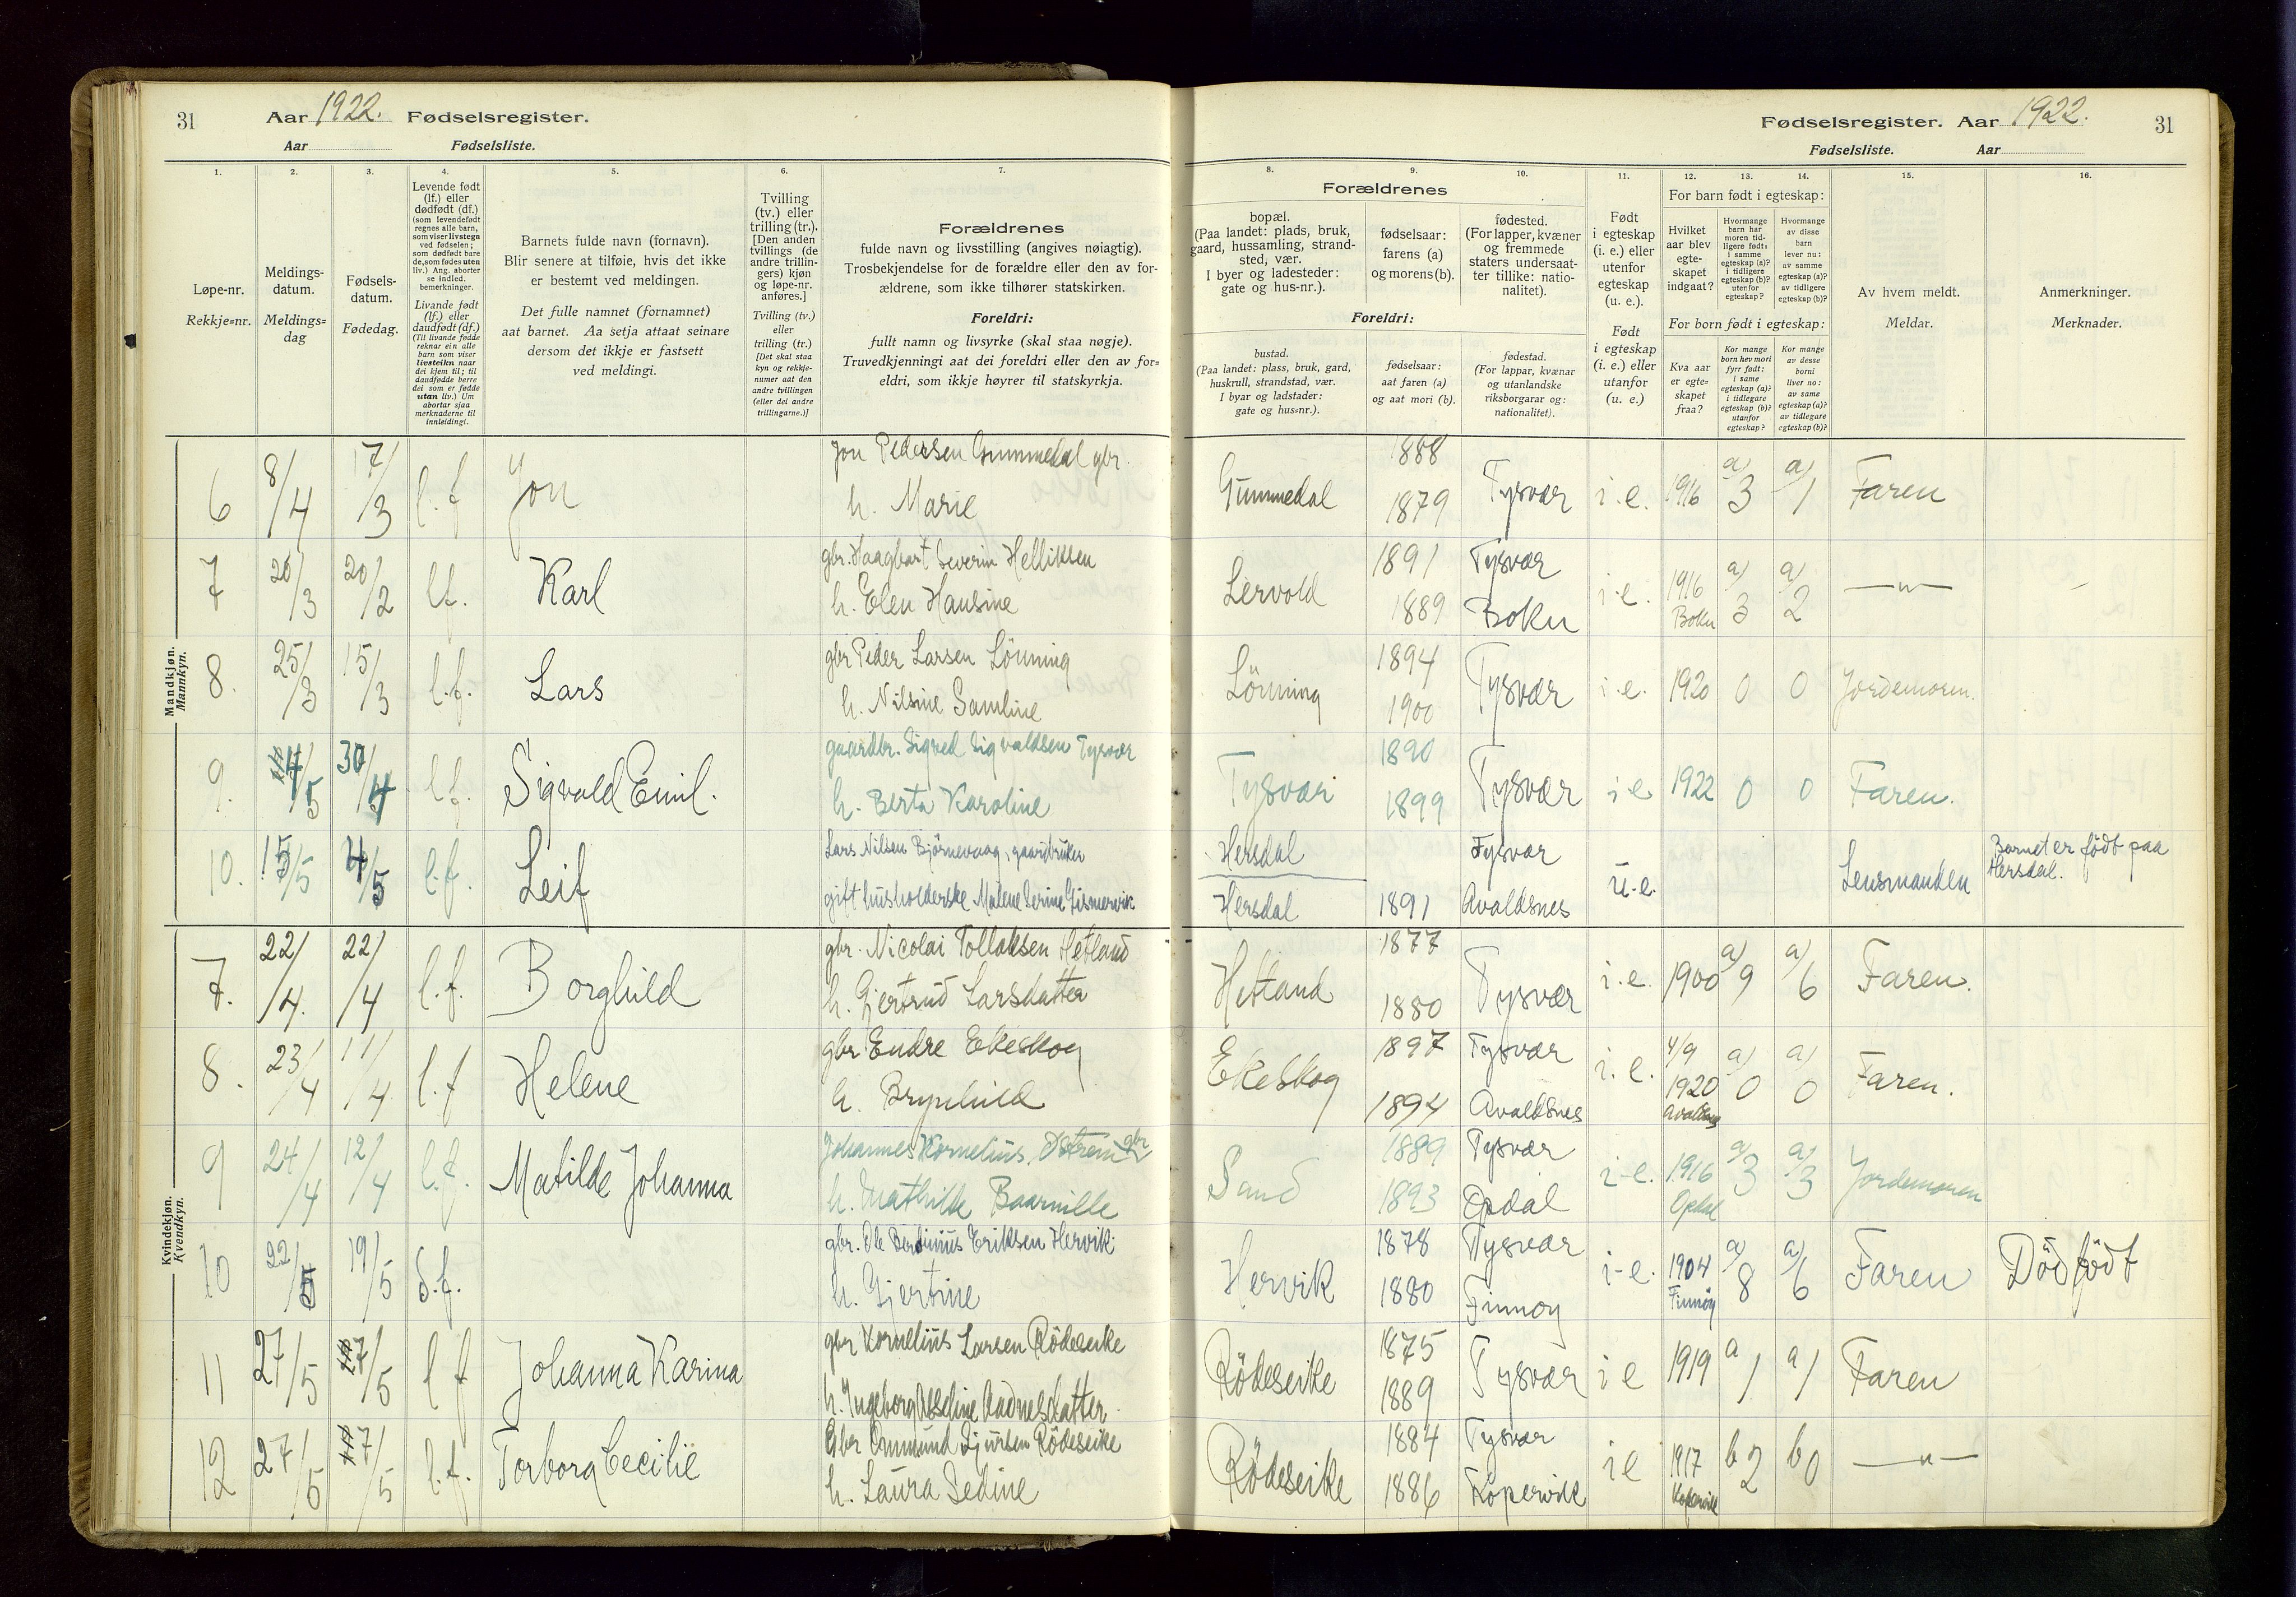 31 Aar 1922. Fødselsregister.
Aar Fødselsliste.
Fødselsregister. Aar 1922. 31
Fødselsliste. Aar
1. 2. 3. 4. 5. 6. 7. 8. 9. 10. 11. 12. 13. 14. 15. 16.
Løpe-nr.
Rekkje=nr.
Meldings-
datum.
Meldings=
dag
Fødsels-
datum.
Fødedag.
Levende født
(lf.) eller
dødfødt (df.)
(som levendefødt
regnes alle barn,
som viser livstegn
ved fødselen;
som dødfødt bare
de, som fødes uten
liv.) Ang. aborter
se indled.
bemerkninger.
Livande født
(lf.) eller
daudfødt (df.)
(Til livande fødde
reknar ein alle
barn som viser
livsteikn naar
dei kjem til; til
daudfødde berre
dei som er fødde
utan liv.) Um
abortar sjaa
merknaderne til
innleidingi.
Barnets fulde navn (fornavn).
Blir senere at tilføie, hvis det ikke
er bestemt ved meldingen.
Det fulle namnet (fornamnet)
aat barnet. Aa setja attaat seinare
dersom det ikkje er fastsett
ved meldingi.
Tvilling
(tv.) eller
trilling (tr.).
[Den anden
tvillings (de
andre trillin-
gers) kjøn
og løpe-nr.
anføres.]
Tvilling (tv.)
eller
trilling (tr.)
[Det skal staa
kyn og rekkje-
numer aat den
andre tvillingen
(eller dei andre
trillingarne.)]
Forældrenes
fulde navn og livsstilling (angives nøiagtig).
Trosbekjendelse for de forældre eller den av for-
ældrene, som ikke tilhører statskirken.
Foreldri:
fullt namn og livsyrke (skal staa nøgje).
Truvedkjenningi aat dei foreldri eller den av for=
eldri, som ikkje høyrer til statskyrkja.
Forældrenes
bopæl.
(Paa landet: plads, bruk,
gaard, hussamling, strand-
sted, vær.
I byer og ladesteder:
gate og hus-nr.).
fødselsaar:
farens (a)
og morens (b).
fødested.
(For lapper, kvæner
og fremmede
staters undersaat-
ter tillike: natio-
nalitet).
Foreldri:
bustad.
(Paa landet: plass, bruk, gard,
huskrull, strandstad, vær.
I byar og ladstader:
gate og hus=nr.).
fødselsaar:
aat faren (a)
og aat mori (b).
fødestad.
(For lappar, kvænar
og utanlandske
riksborgarar og:
nationalitet).
Født
i egteskap
(i. e.) eller
utenfor
egteskap
(u. e.).
Født
i egteskap
(i. e.) eller
utanfor
(u. e.)
For barn født i egteskap:
Hvilket
aar blev
egte-
skapet
indgaat?
Hvormange
barn har
moren tid-
ligere født:
i samme
egteskap (a)?
i tidligere
egteskap (b)?
utenfor
egteskap?
Hvormange
av disse
barn
lever nu:
av samme
egteskap (a)?
av tidligere
egteskap (b)?
For born født i egteskap:
Kva aar
er egte=
skapet
fraa?
Kor mange
born hev mori
fyrr født:
i same
egteskap (a)?
i tidlegare
egteskap (b)?
utanfor
egteskap?
Kor mange
av desse
borni
liver no:
av same
egteskap (a)?
av tidlegare
egteskap (b)?
Av hvem meldt.
Meldar.
Anmerkninger.
Merknader.
Mandkjøn.
Mannkyn.
6 8/4 17/3 l.f Jon Jon Pedersen Gummedal gbr. Gummedal 1888 Tysvær i.e. 1916 a) 3 a) 1 Faren
h. Marie 1879
7 20/3 20/2 l.f. Karl gbr. Haagbart Severin Helliksen Lervold 1891 Tysvær i.e. 1916 a) 3 a) 2 —"—
h. Elen Hansine 1889 Bokn Bokn
8. 25/3 15/3 l.f. Lars gbr Peder Larsen Lönning Lönning 1894 Tysvær i.e. 1920 0 0 Jordemoren.
h. Nilsine Samline 1900
9. 4/5 30/4 l.f. Sigvald Emil. gaardbr. Sigved Sigvaldsen Tysvær Tysvær 1890 Tysvær i e 1922 0 0 Faren.
h. Berta Karoline 1899
10. 15/5 4/5 l.f. Leif Lars Nilsen Björnevaag, gaardbruker Hersdal Tysvær u.e. Lensmanden Barnet er födt paa
Hersdal.
gift husholderske Malene Serine Gismervik Hersdal 1891 Avaldsnes
Kvindekjøn.
Kvendkyn.
7. 22/4. 22/4 l.f. Borghild gbr. Nicolai Tollaksen Hetland Hetland 1877 Tysvær i.e. 1900 a) 9 a) 6 Faren.
h. Gjertrud Larsdatter 1880
8. 23/4 11/4 l.f Helene gbr Endre Ekeskog Ekeskog 1897 Tysvær i.e. 4/9 1920 a) 0 a) 0 Faren.
h. Brynhild 1894 Avaldsnes Avaldsnes
9 24/4 12/4 l.f. Matilde Johanna Johannes Kornelius Östrem gbr Sand 1889 Tysvær i-e. 1916 a) 3 a) 3 Jordemoren
h. Mathilde 1893 Opdal Opdal
10 22/5 19/5 d.f. gbr. Ole Berdinius Eriksen Hervik Hervik 1878 Tysvær i-e. 1904 a) 8 a) 6 Faren Död födt
h. Gjertine 1880 Finnöy Finnöy
11 27/5 7/5 l f Johanna Karina gbr Kornelius Larsen Rödeseike Rödeseike 1875 Tysvær i e 1919 a 1 a 1 Faren
h. Ingeborg Aadnesdatter 1889
12 27/5 7/5 l.f. Torborg Cecilie Gbr Ommund Sjursen Rödeseike Rödeseike 1884 Tysvær i e 1917 b 2 b 0 —"—
h. Laura Sedine 1886 Kopervik Kopervik